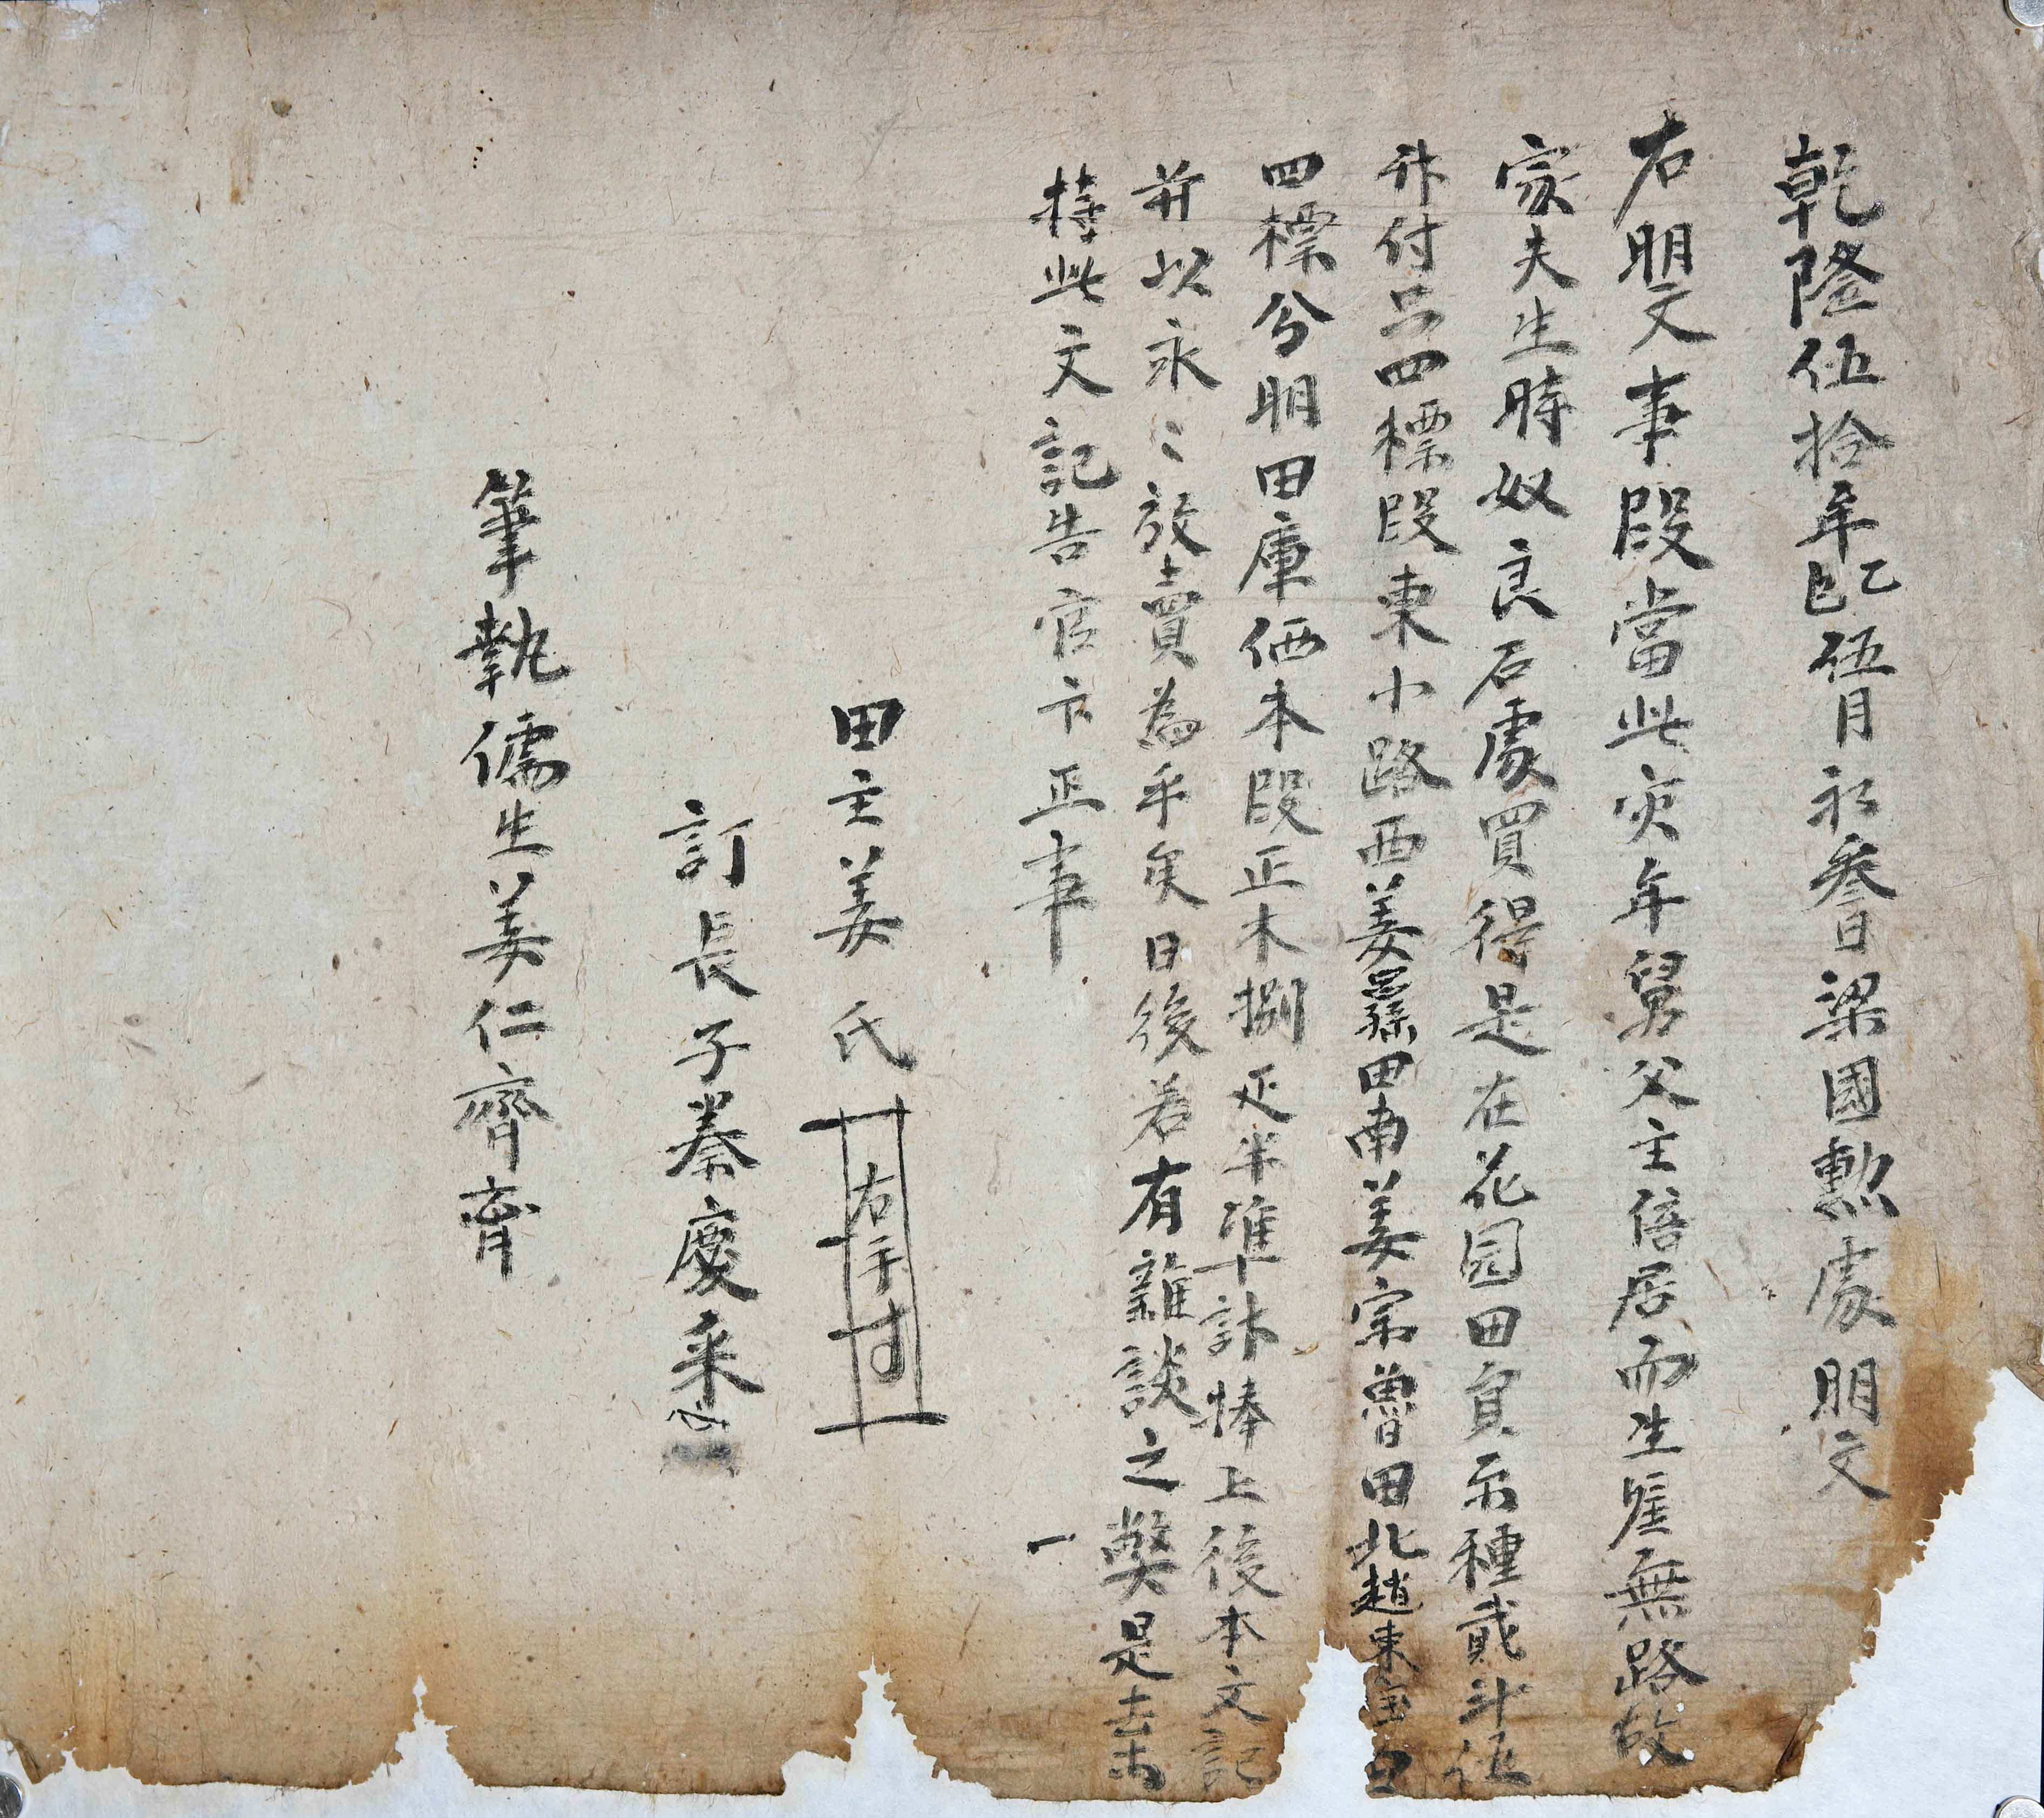 乾隆伍拾年乙巳伍月初叁日梁國勲處明文
右明文事段當此灾年舅父主偕居而生涯無路故
家夫生時奴良石處買得是在花园田負示種貳斗伍
升付只四標段東小路西姜孫田南姜宗魯田北趙東田
四標分明田庫価本段正木捌疋半準計捧上後本文記
并以永〻放賣為乎矣日後若有雜談之獘是去等
持此文記告官卞正事
田主姜氏 右手寸
訂長子秦慶釆
筆執儒生姜仁齊